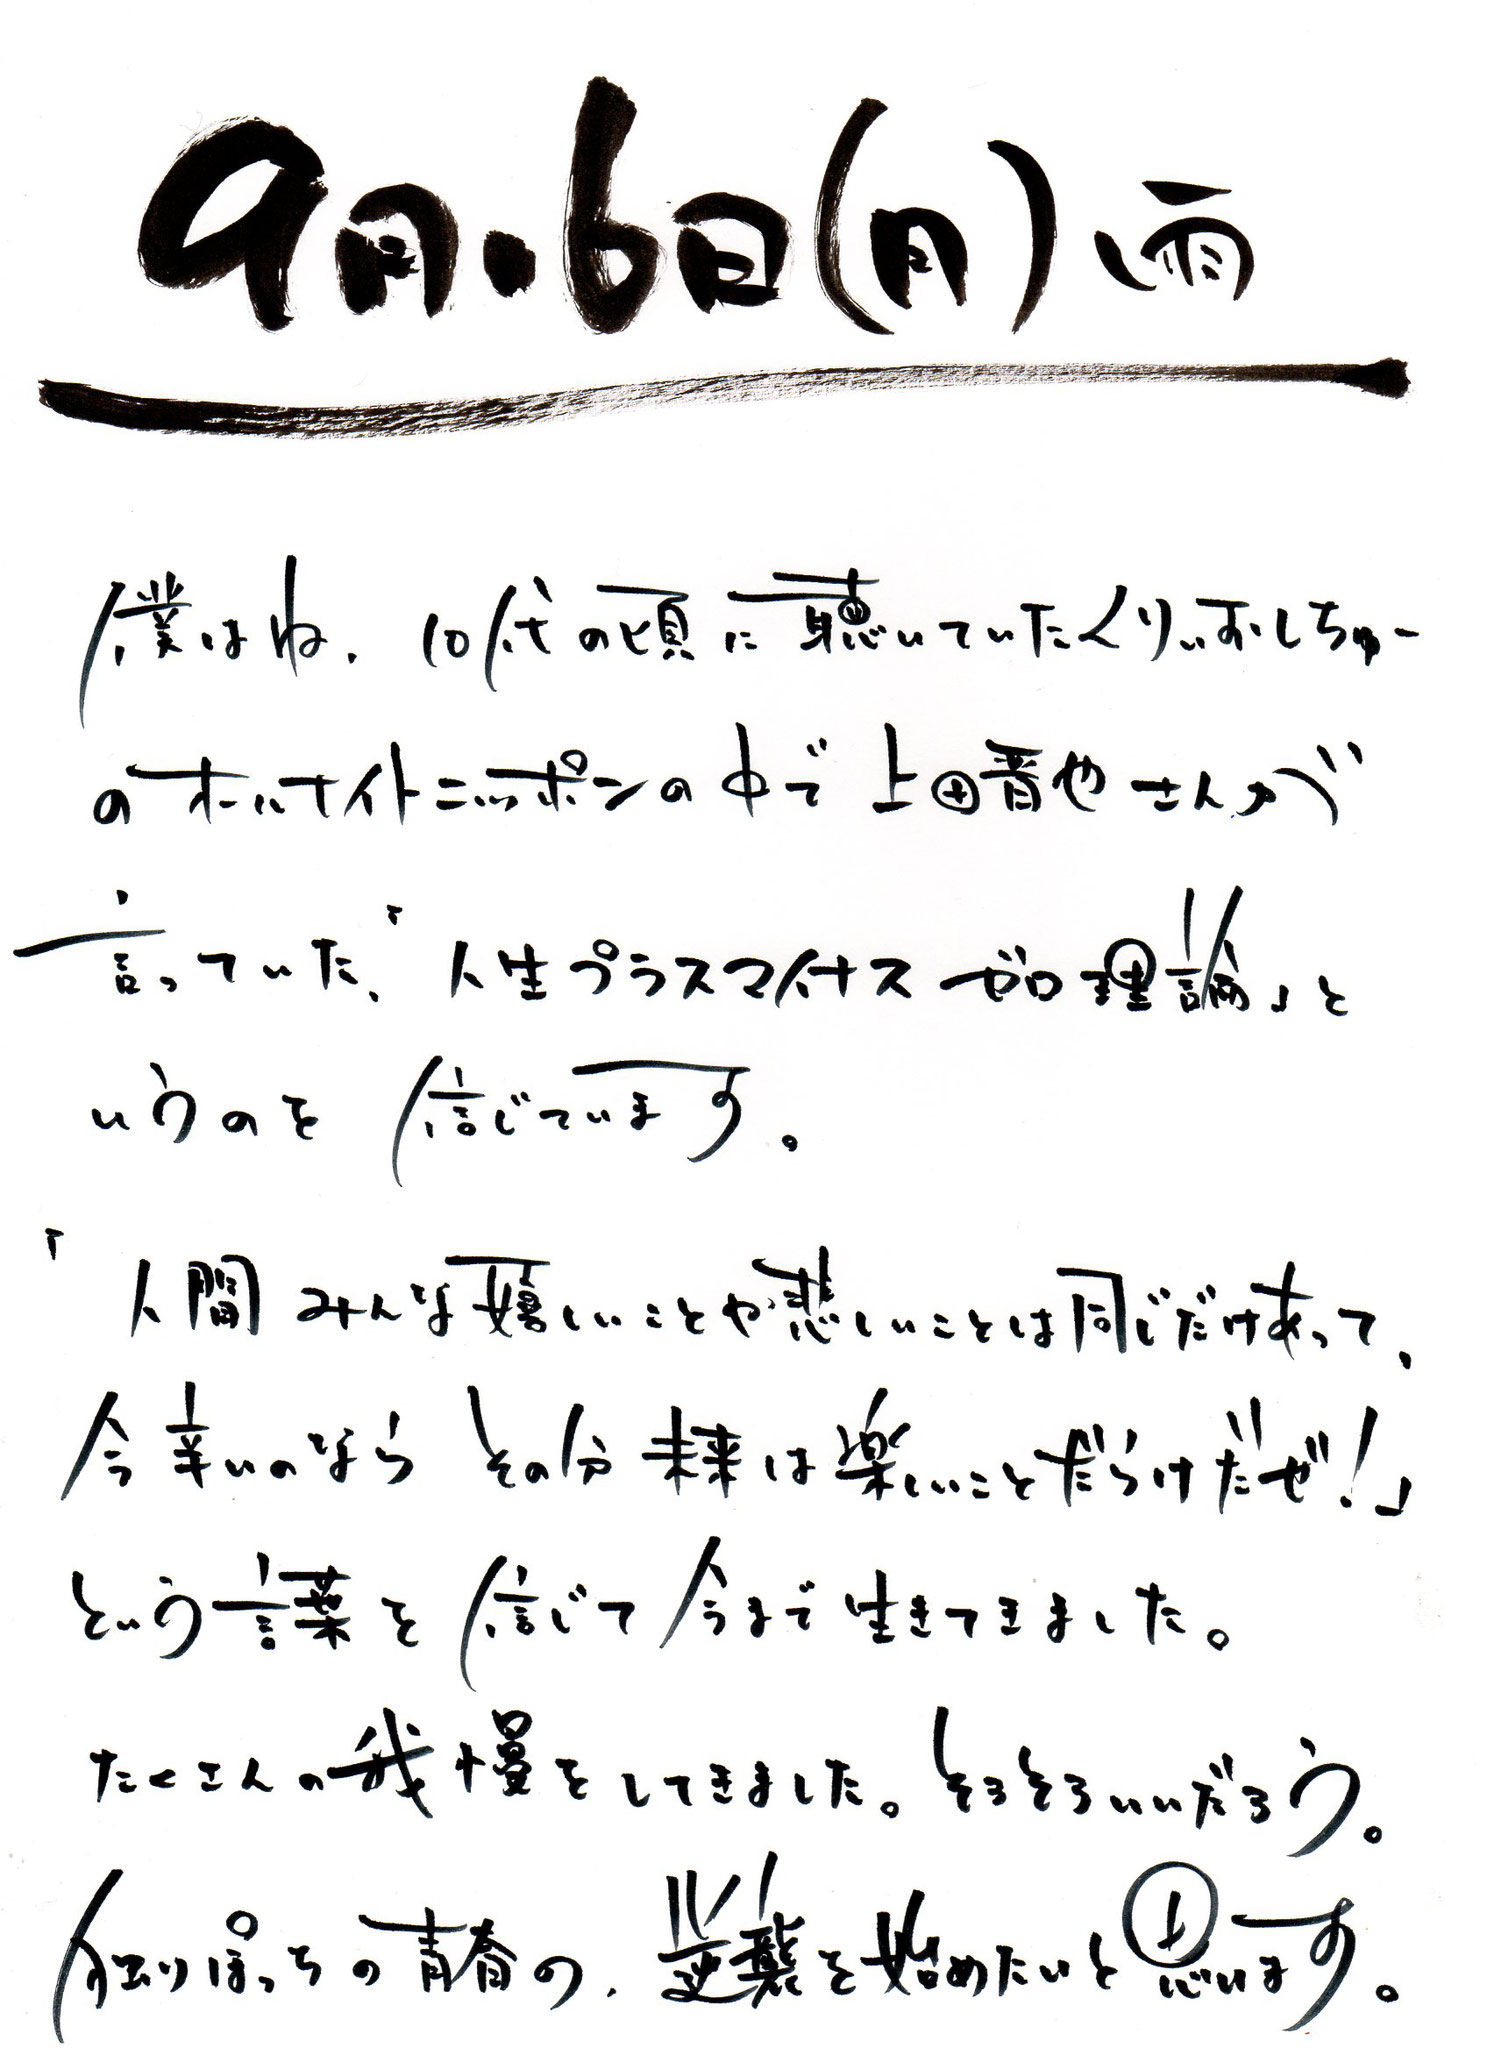 9月.6日(月)雨
僕はね、10代の頃に聴いていたくりぃむしちゅー
のオールナイトニッポンの中で上田晋也さんが
言っていた、「人生プラスマイナスゼロ理論」と
いうのを信じています。
「人間みんな嬉しいことや悲しいことは同じだけあって、
今辛いのならその分未来は楽しいことだらけだぜ!」
という言葉を信じて今まで生きてきました。
たくさんの我慢をしてきました。そろそろいいだろう。
独りぼっちの青春の、逆襲を始めたいと思います。